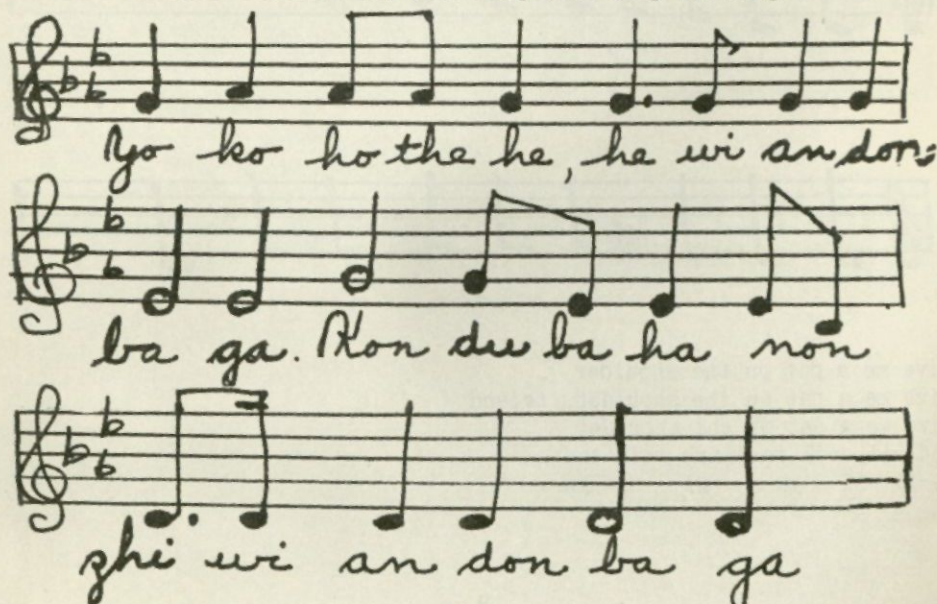 Yo ko ho the he, he wi an don=
ba ga. Kon du ba ha non
zhi wi an don ba ga